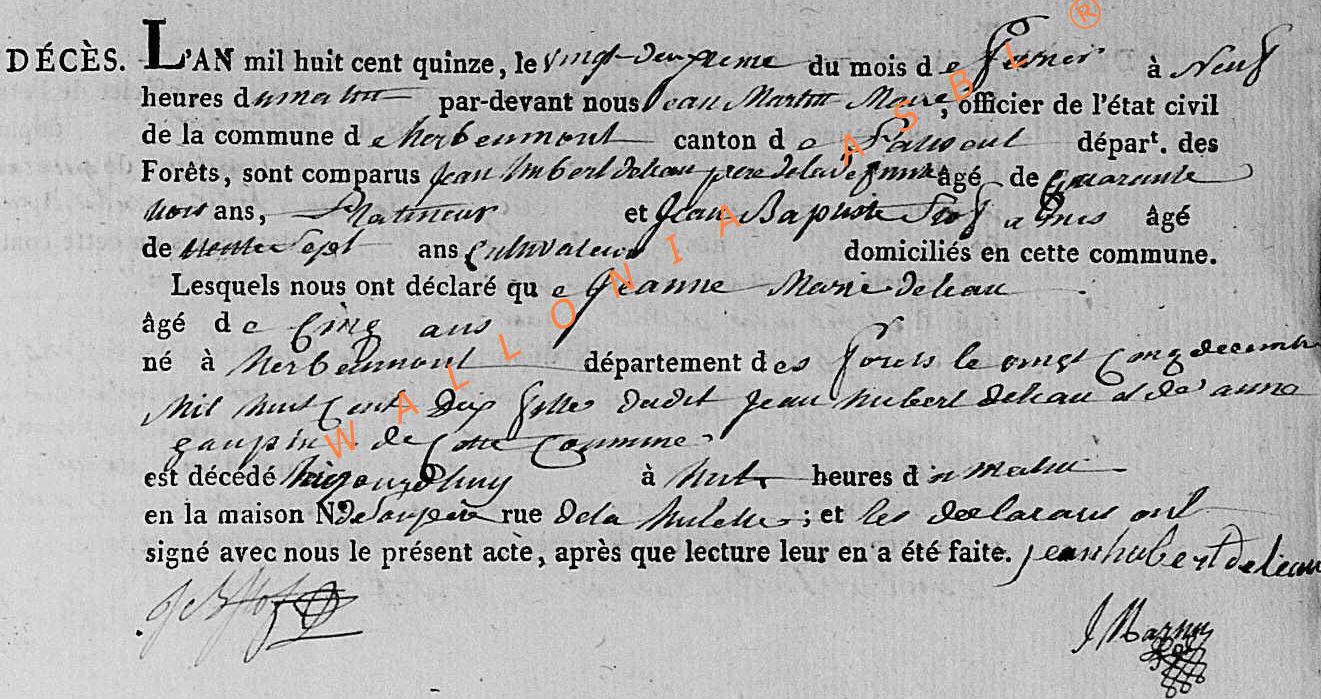 DÉCÈS. L'AN mil huit cent quinze, le vingt-deuxieme du mois de fevrier à Neuf
heures du matin par-devant nous Jean Martin Maire, officier de l'état civil
de la commune de herbeumont canton de départ. des
Forêts, sont comparus Jean hubert deleau pere de la defunte âgé de quarante
trois ans, et Jean Baptiste âgé
de trente Sept ans Cultivateur domiciliés en cette commune.
Lesquels nous ont déclaré que Jeanne Marie deleau
âgé de Cinq ans
né à herbeumont département des forets le vingt Cinq decembre
Mil huit Cent Dix fille dudit Jean hubert deleau et de anne
de Cette Commune
est décédé aujourdhuy à huit heures du matin
en la maison No de son père rue de la ; et les declarans ont
signé avec nous le présent acte, après que lecture leur en a été faite. jean hubert deleau
J Martin
WALLONIA ASBL ®